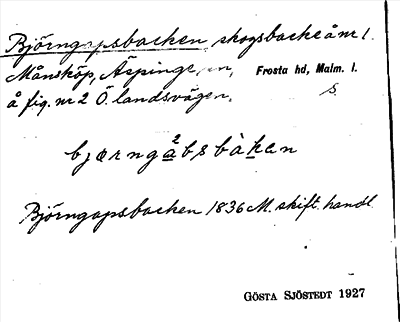 Björngapsbacken, skogsbacke å nr 1.
Månstköp, Äspinge sn, Frosta hd, Malm. l.
å fig. nr 2 Ö. landsvägen. s.
bjœrngàbsbàkan
Björngapsbacken 1836 M. skift. handl.
GÖSTA SJÖSTEDT 1927